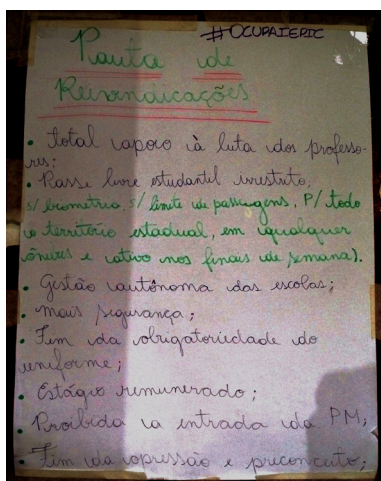 #OCUPAIERIC
Pauta de
Reivindicações
• Total apoio à luta dos professo-
res;
• Passe livre estudantil irrestrito,
s/ biometria, s/ limite de passagens, P/ todo
o território estadual, em qualquer
ônibus e ativo nos finais de semana).
• Gestão autônoma das escolas;
• Mais segurança;
• Fim da obrigatoriedade do
uniforme;
• Estágio remunerado;
• Proibida a entrada da PM;
• Fim da opressão e preconceito;